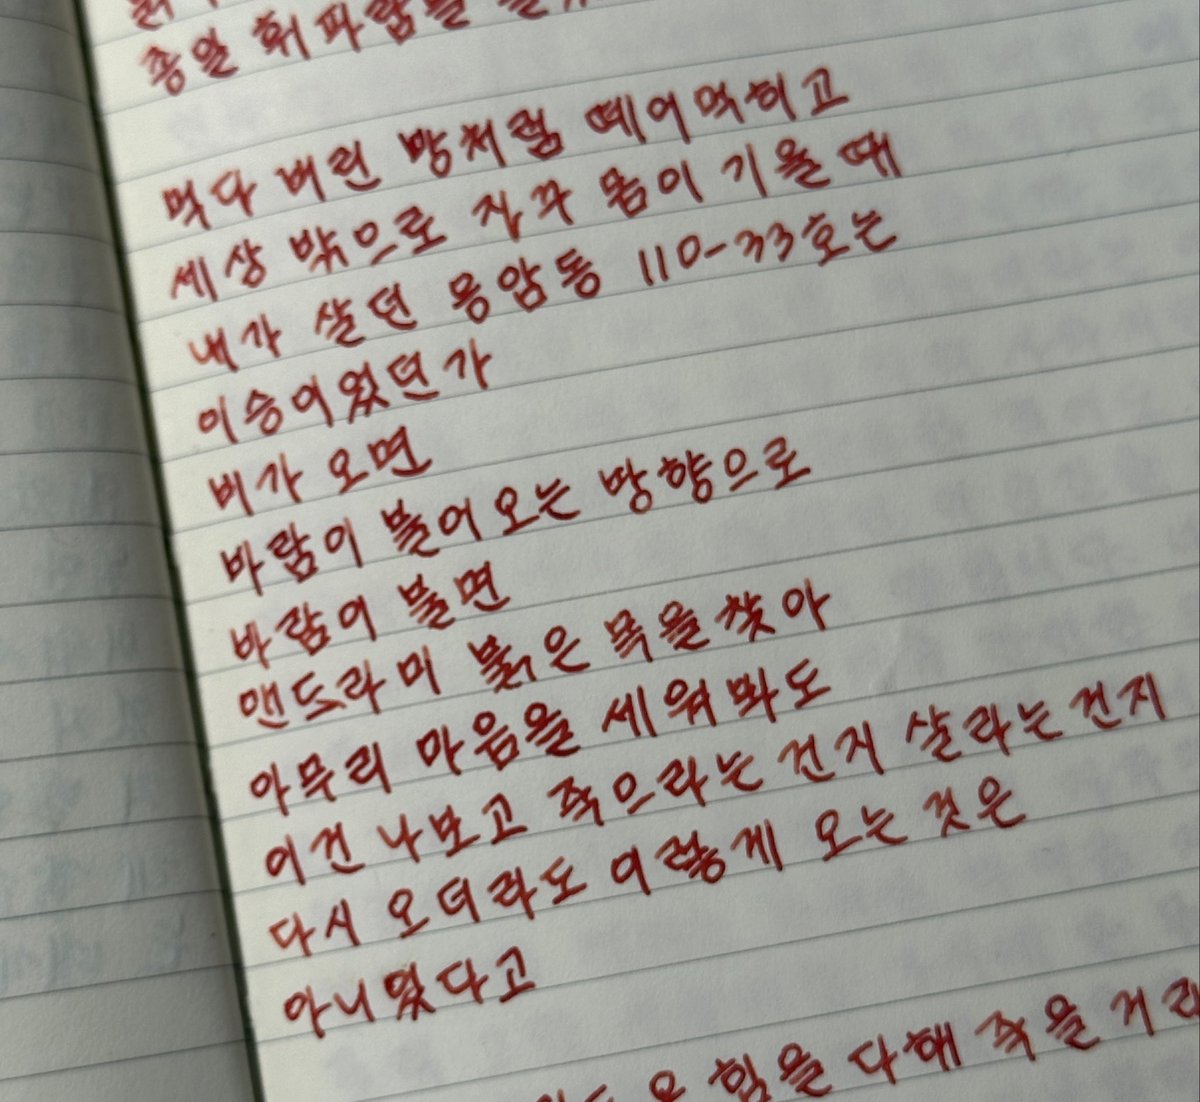 종일 휘파람을
먹다 버린 빵처럼 떼어먹히고
세상 밖으로 자꾸 몸이 기울 때
내가 살던 응암동 110-33호는
이승이었던가
비가 오면
바람이 불어오는 방향으로
바람이 불면
맨드라미 붉은 목을 찾아
아무리 마음을 세워봐도
이건 나보고 죽으라는 건지 살라는 건지
다시 오더라도 이렇게 오는 것은
아니었다고
힘을 다해 죽을